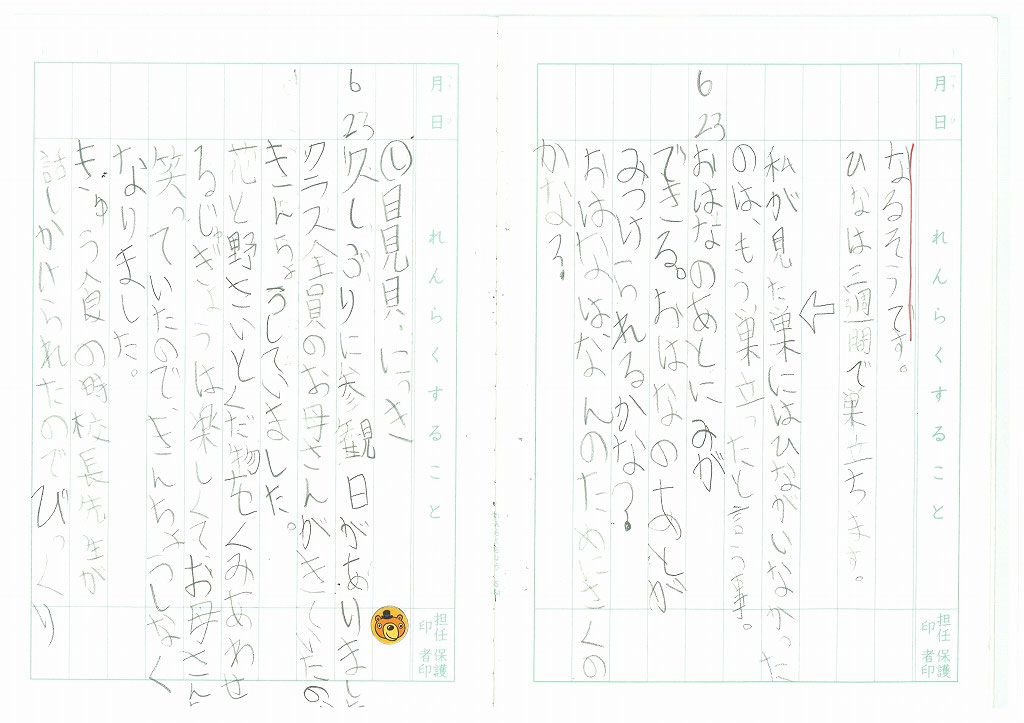 月 日
れんらくすること
担任印 保護者印
なるそうです。
ひなは三週間で巣立ちます。
私が見た巣にはひながいなかった
のは、もう巣立ったと言う事。
6 23
おはなのあとに みが
できる。おはなのあとが
みつけられるかな?
おはなはなんのためにさくの
かな?
月 日
れんらくすること
担任印 保護者印
見見. にっき
6 23
久しぶりに参観日がありまし
クラス全員のお母さんがきていたの
きんちょうしていました。
花と野さいとくだ物をくみあわせ
るじゅぎょうは楽しくてお母さん
笑っていたので、きんちょうしなく
なりました。
きゅう食の時校長先生が
話しかけられたのでびっくり